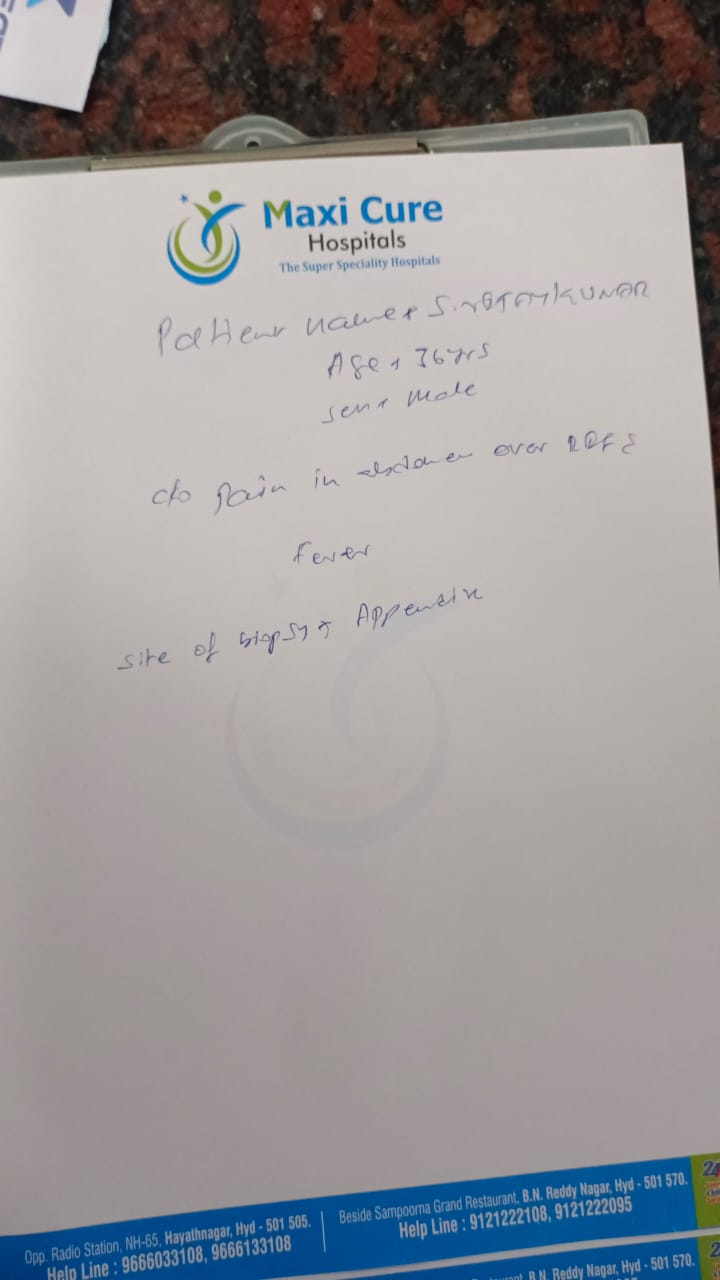 Maxi Cure
Hospitals
The Super Speciality Hospitals
Patient name:
Age: 36 yrs
sex: Male
c/o Pain in abdomen over
Fever
site of biopsy: Appendix
Opp. Radio Station, NH-65, Hayathnagar, Hyd - 501 505.
Help Line : 9666033108, 9666133108
Beside Sampoorna Grand Restaurant, B.N. Reddy Nagar, Hyd - 501 570.
Help Line : 9121222108, 9121222095
B.N. Reddy Nagar, Hyd - 501 570.